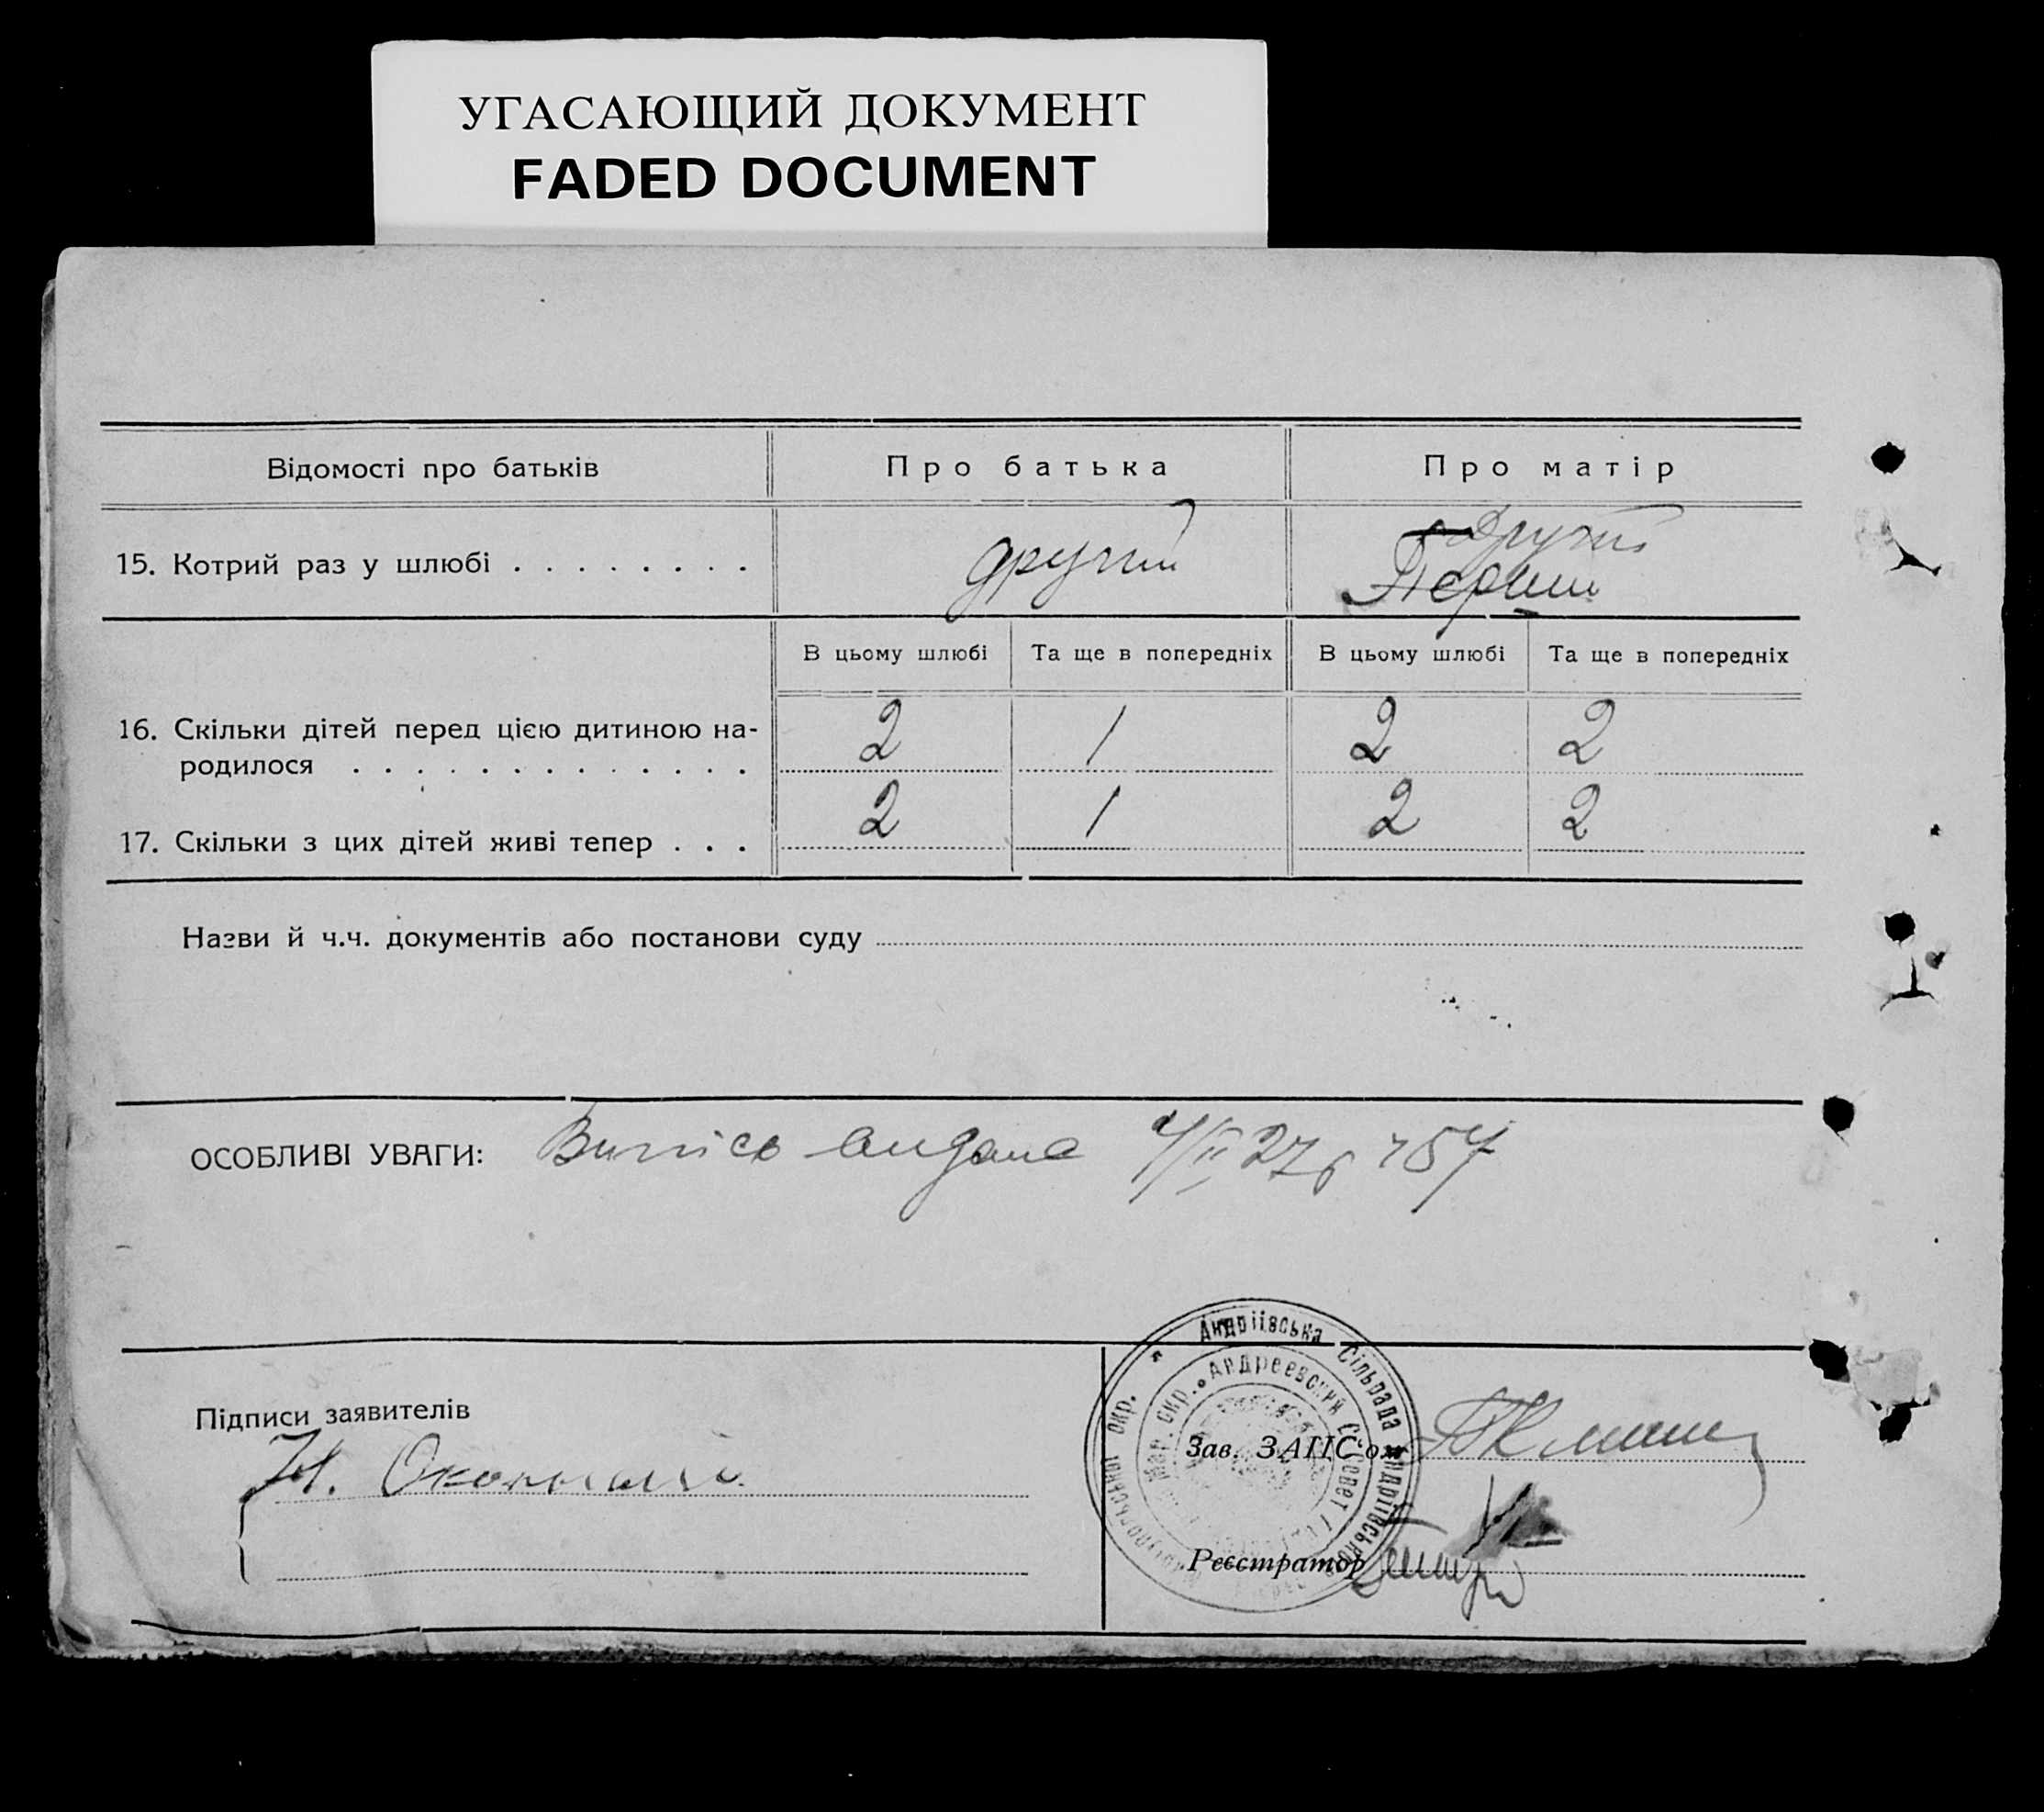 УГАСАЮЩИЙ ДОКУМЕНТ
FADED DOCUMENT
Відомості про батьків
Про батька
Про матір
15. Котрий раз у шлюбі . . . . . . . .
другий
Другий
Перший
В цьому шлюбі
Та ще в попередніх
В цьому шлюбі
Та ще в попередніх
16. Скільки дітей перед цією дитиною на-
родилося . . . . . . . . . . . . .
2
1
2
2
17. Скільки з цих дітей живі тепер . . .
2
1
2
2
Назви й ч.ч. документів або постанови суду
ОСОБЛИВІ УВАГИ: Випісь видана
Андріівська Сільрада Андріівсько
окр.
Андреевский С/Совет
Мар. окр.
Підписи заявителів
Зав. ЗАПС'ом
Реєстратор